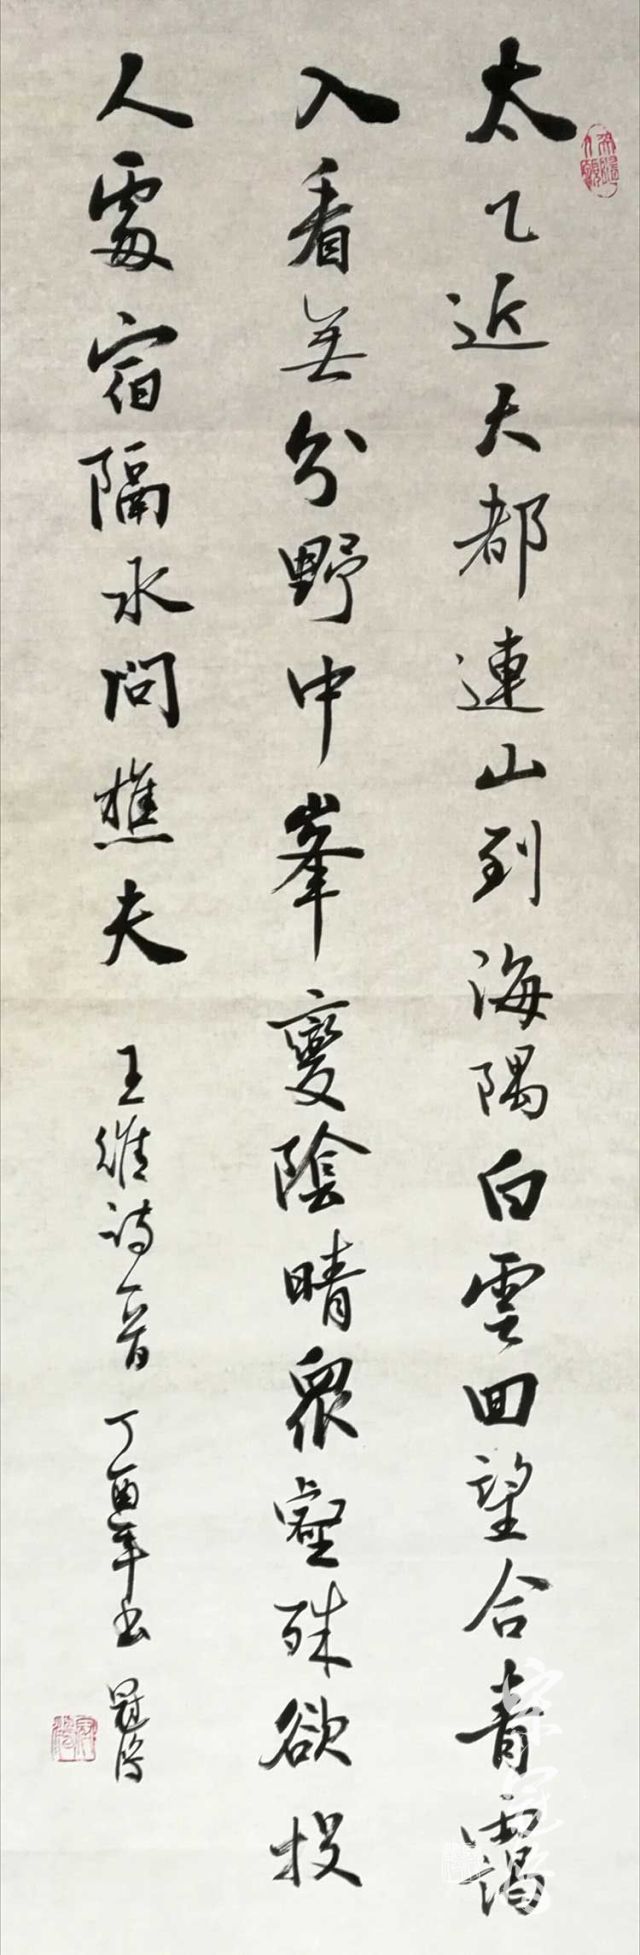 太乙近天都連山到海隅白雲回望合青靄
入看無分野中峯變陰晴衆壑殊欲投
人處宿隔水問樵夫 王維诗一首 丁酉年书 冠鸿